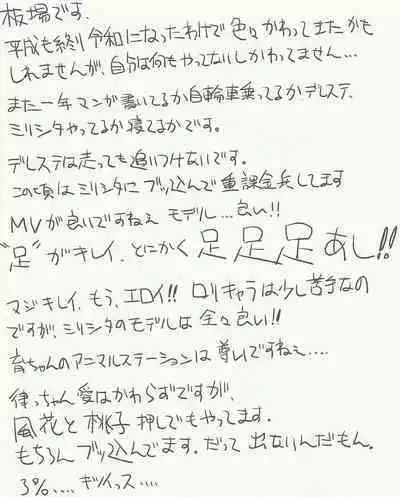 板場です.
平成も終り令和になったわけで色々かわってきたかも
しれませんが、自分は何もやってないしかわってません…
また一年マンガ書いてるか自輪車乗ってるか、デレステ、
ミリシタやってるか寝てるかです。
デレステは走っても追いつけないです。
この頃はミリシタに ブッ込んで重課金兵してます
MVが良いですねぇ モデル…良い!!
"足"がキレイ、とにかく 足 足 足 あし!!
マジキレイ、もう、エロイ!! ロリキャラは少し苦手なの
ですが、ミリシタのモデルは 全々良い!!
育ちゃんのアニマルステーションは 尊いですねぇ....
律っちゃん愛はかわらずですが、
風花と桃子 押しでもやってます.
もちろん ブッ込んでます. だって 出ないんだもん.
3%.... ギツイっス....